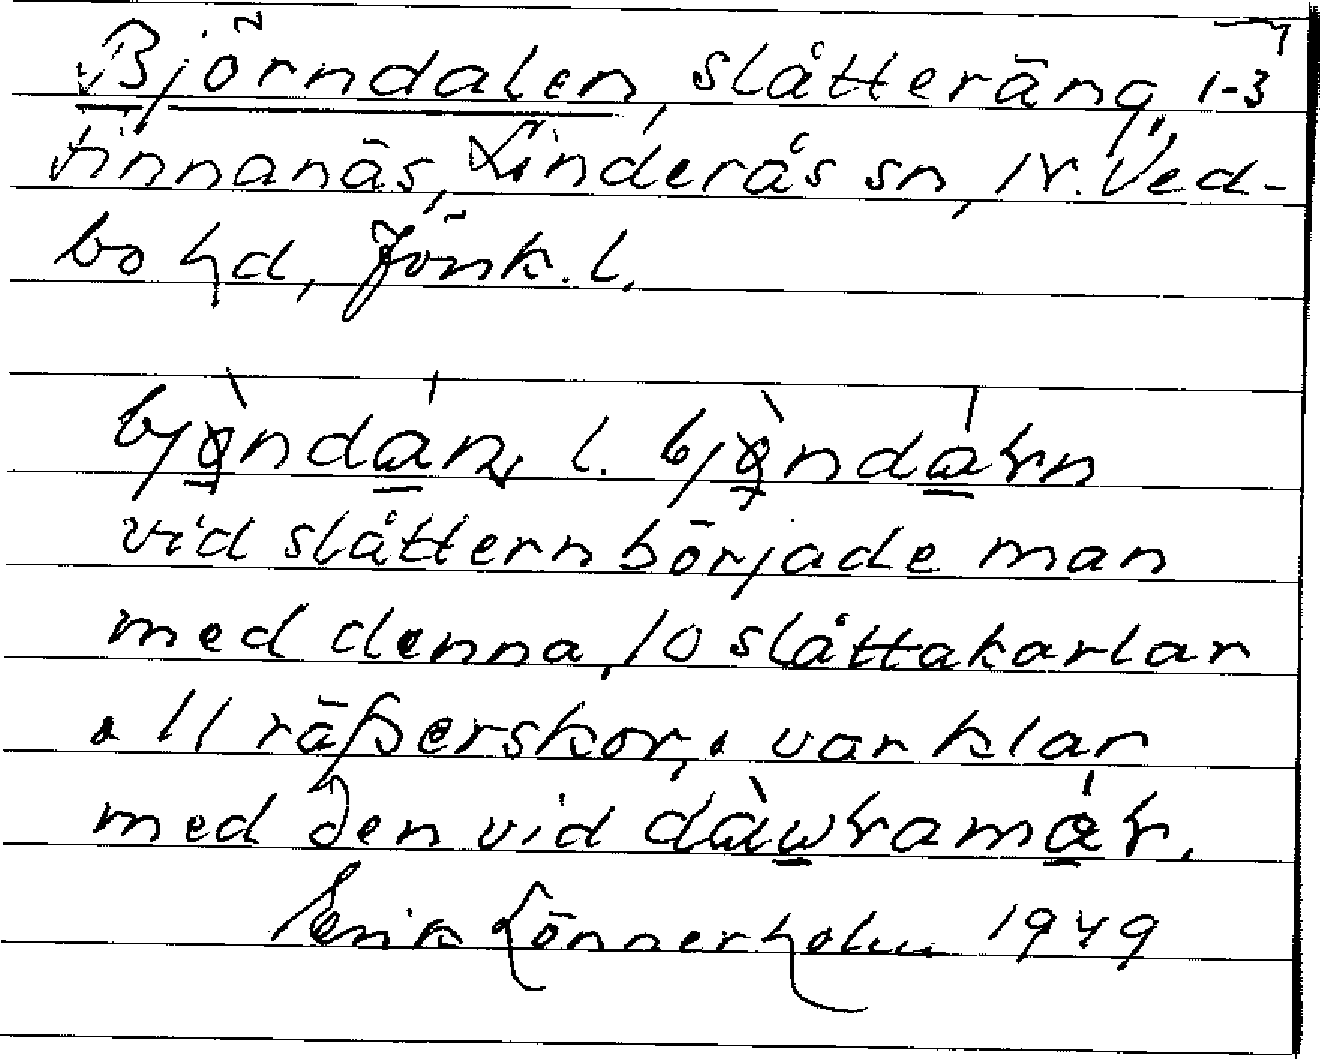 Björndalen, slåtteräng, 1-3
Finnanäs, Linderås sn, N. Ved-
bo hd, Jönk. l.
vid slåttern började man
med denna, 10 slåttakarlar
o 11 räfserskor, o var klar
med den vid
Erik Lönnerholm 1949